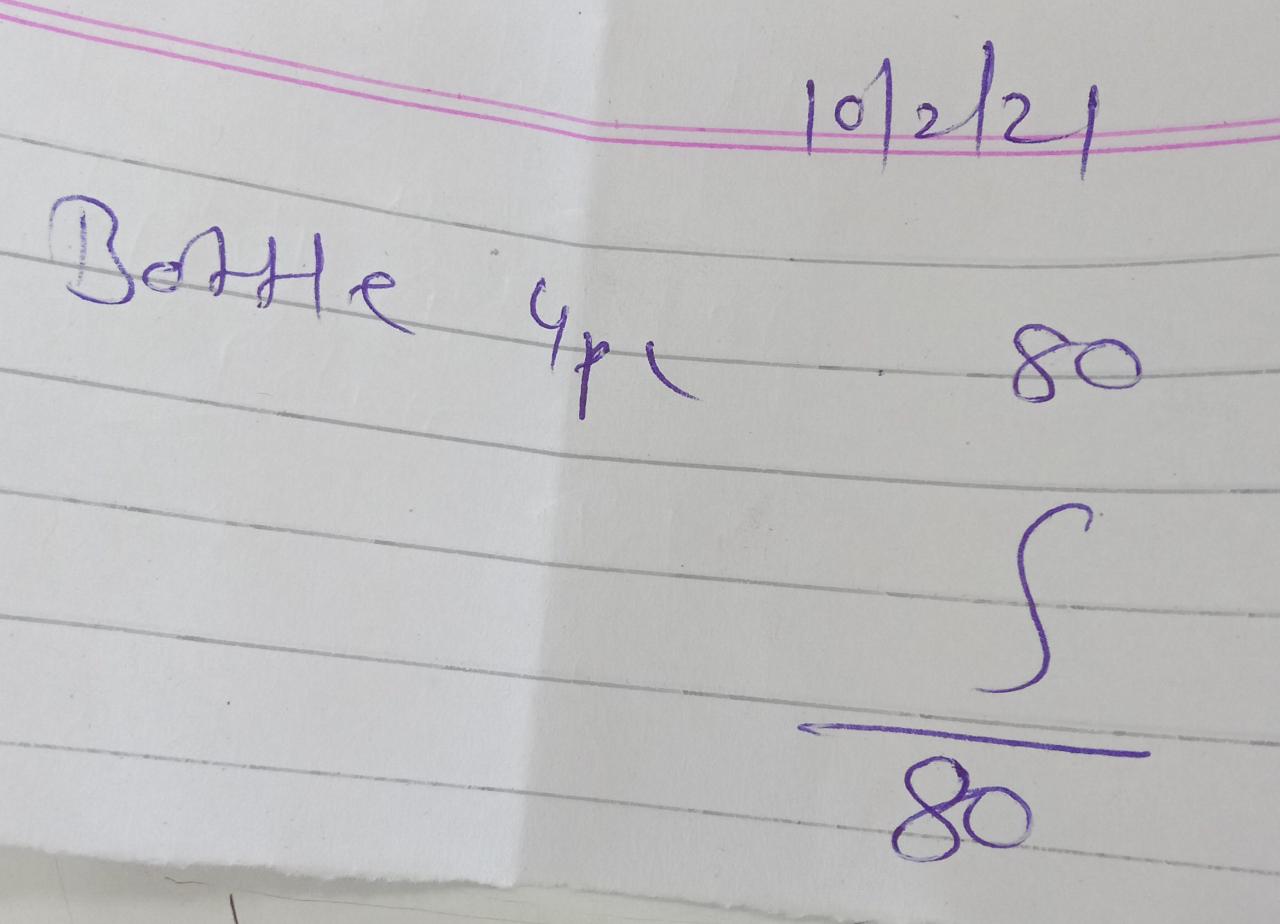 10/2/21
Bottle 4pc 80
80